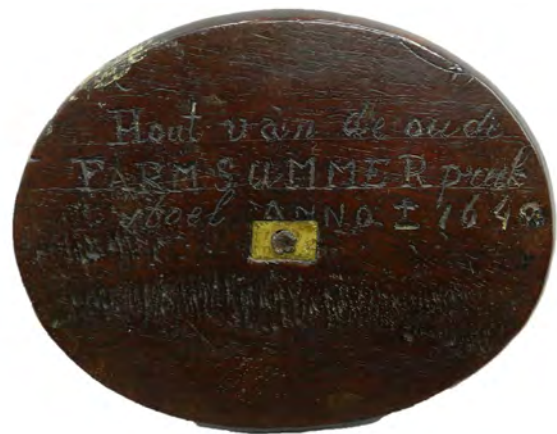 Hout van de oude
FARMSUMMER preek
stoel ANNO ± 1640